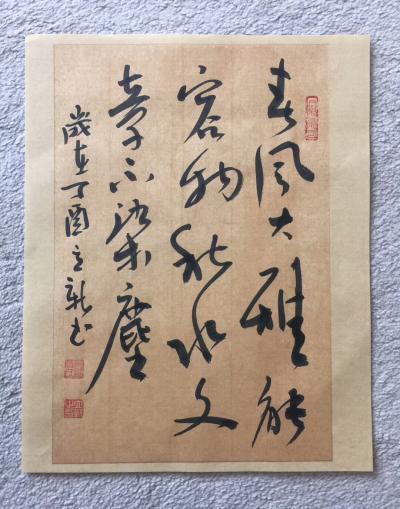 春风大雅能
容物秋水文
章不染塵
歲在丁酉立新书